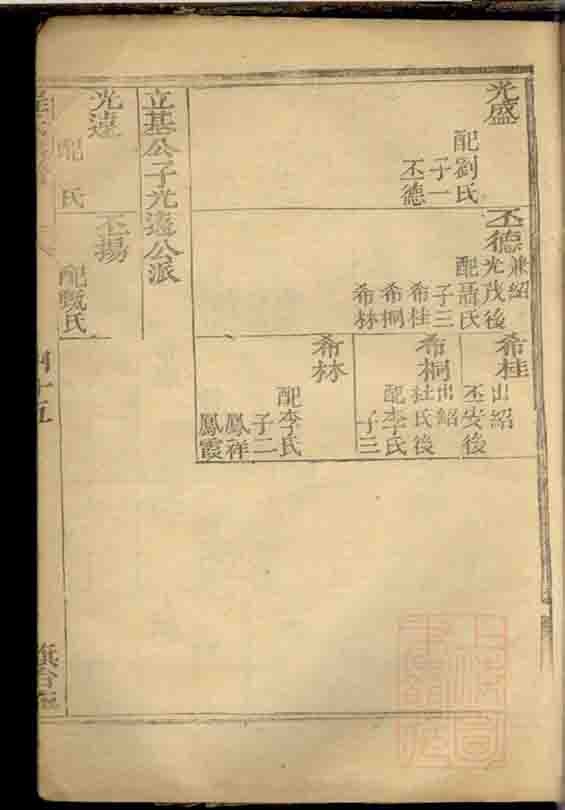 光盛
配劉氏
子一
丕德
丕德
兼紹
光茂後
配聶氏
子三
希桂
希桐
希林
希桂
出紹
丕安後
希桐
出紹
杜氏後
配李氏
子三
希林
配李氏
子二
鳳祥
鳳霞
立基公子光遠公派
光遠
配 氏
丕揚
配甄氏
四十五